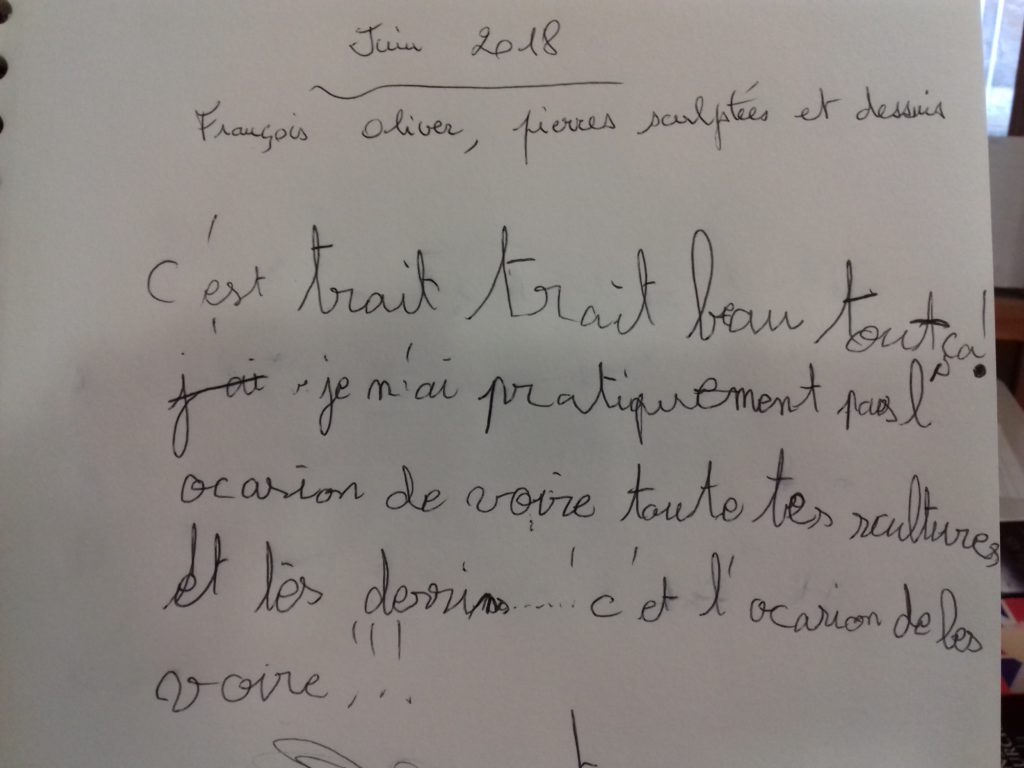 Juin 2018
François Oliver, pierres sculptées et dessins
C'est trait trait beau tout ça !
j ai je n'ai pratiquement pas l
ocasion de voire toute tes scultures
Et tes dessins...... c'et l'ocasion de les
voire, !!!